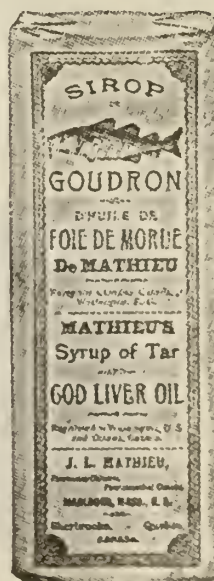 SIROP
DE
GOUDRON
D'HUILE DE
FOIE DE MORUE
De MATHIEU
MATHIEU'S
Syrup of Tar
COD LIVER OIL
J. L. MATHIEU,
Sherbrooke, Quebec,
CANADA.